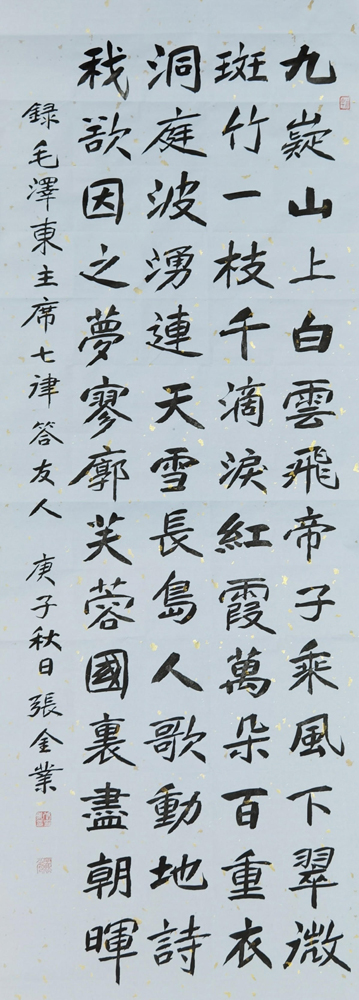 九嶷山上白雲飛帝子乘風下翠微
斑竹一枝千滴淚紅霞萬朵百重衣
洞庭波湧連天雪長島人歌動地詩
我欲因之夢寥廓芙蓉國裏盡朝暉
録毛澤東主席七律答友人 庚子秋日張金業